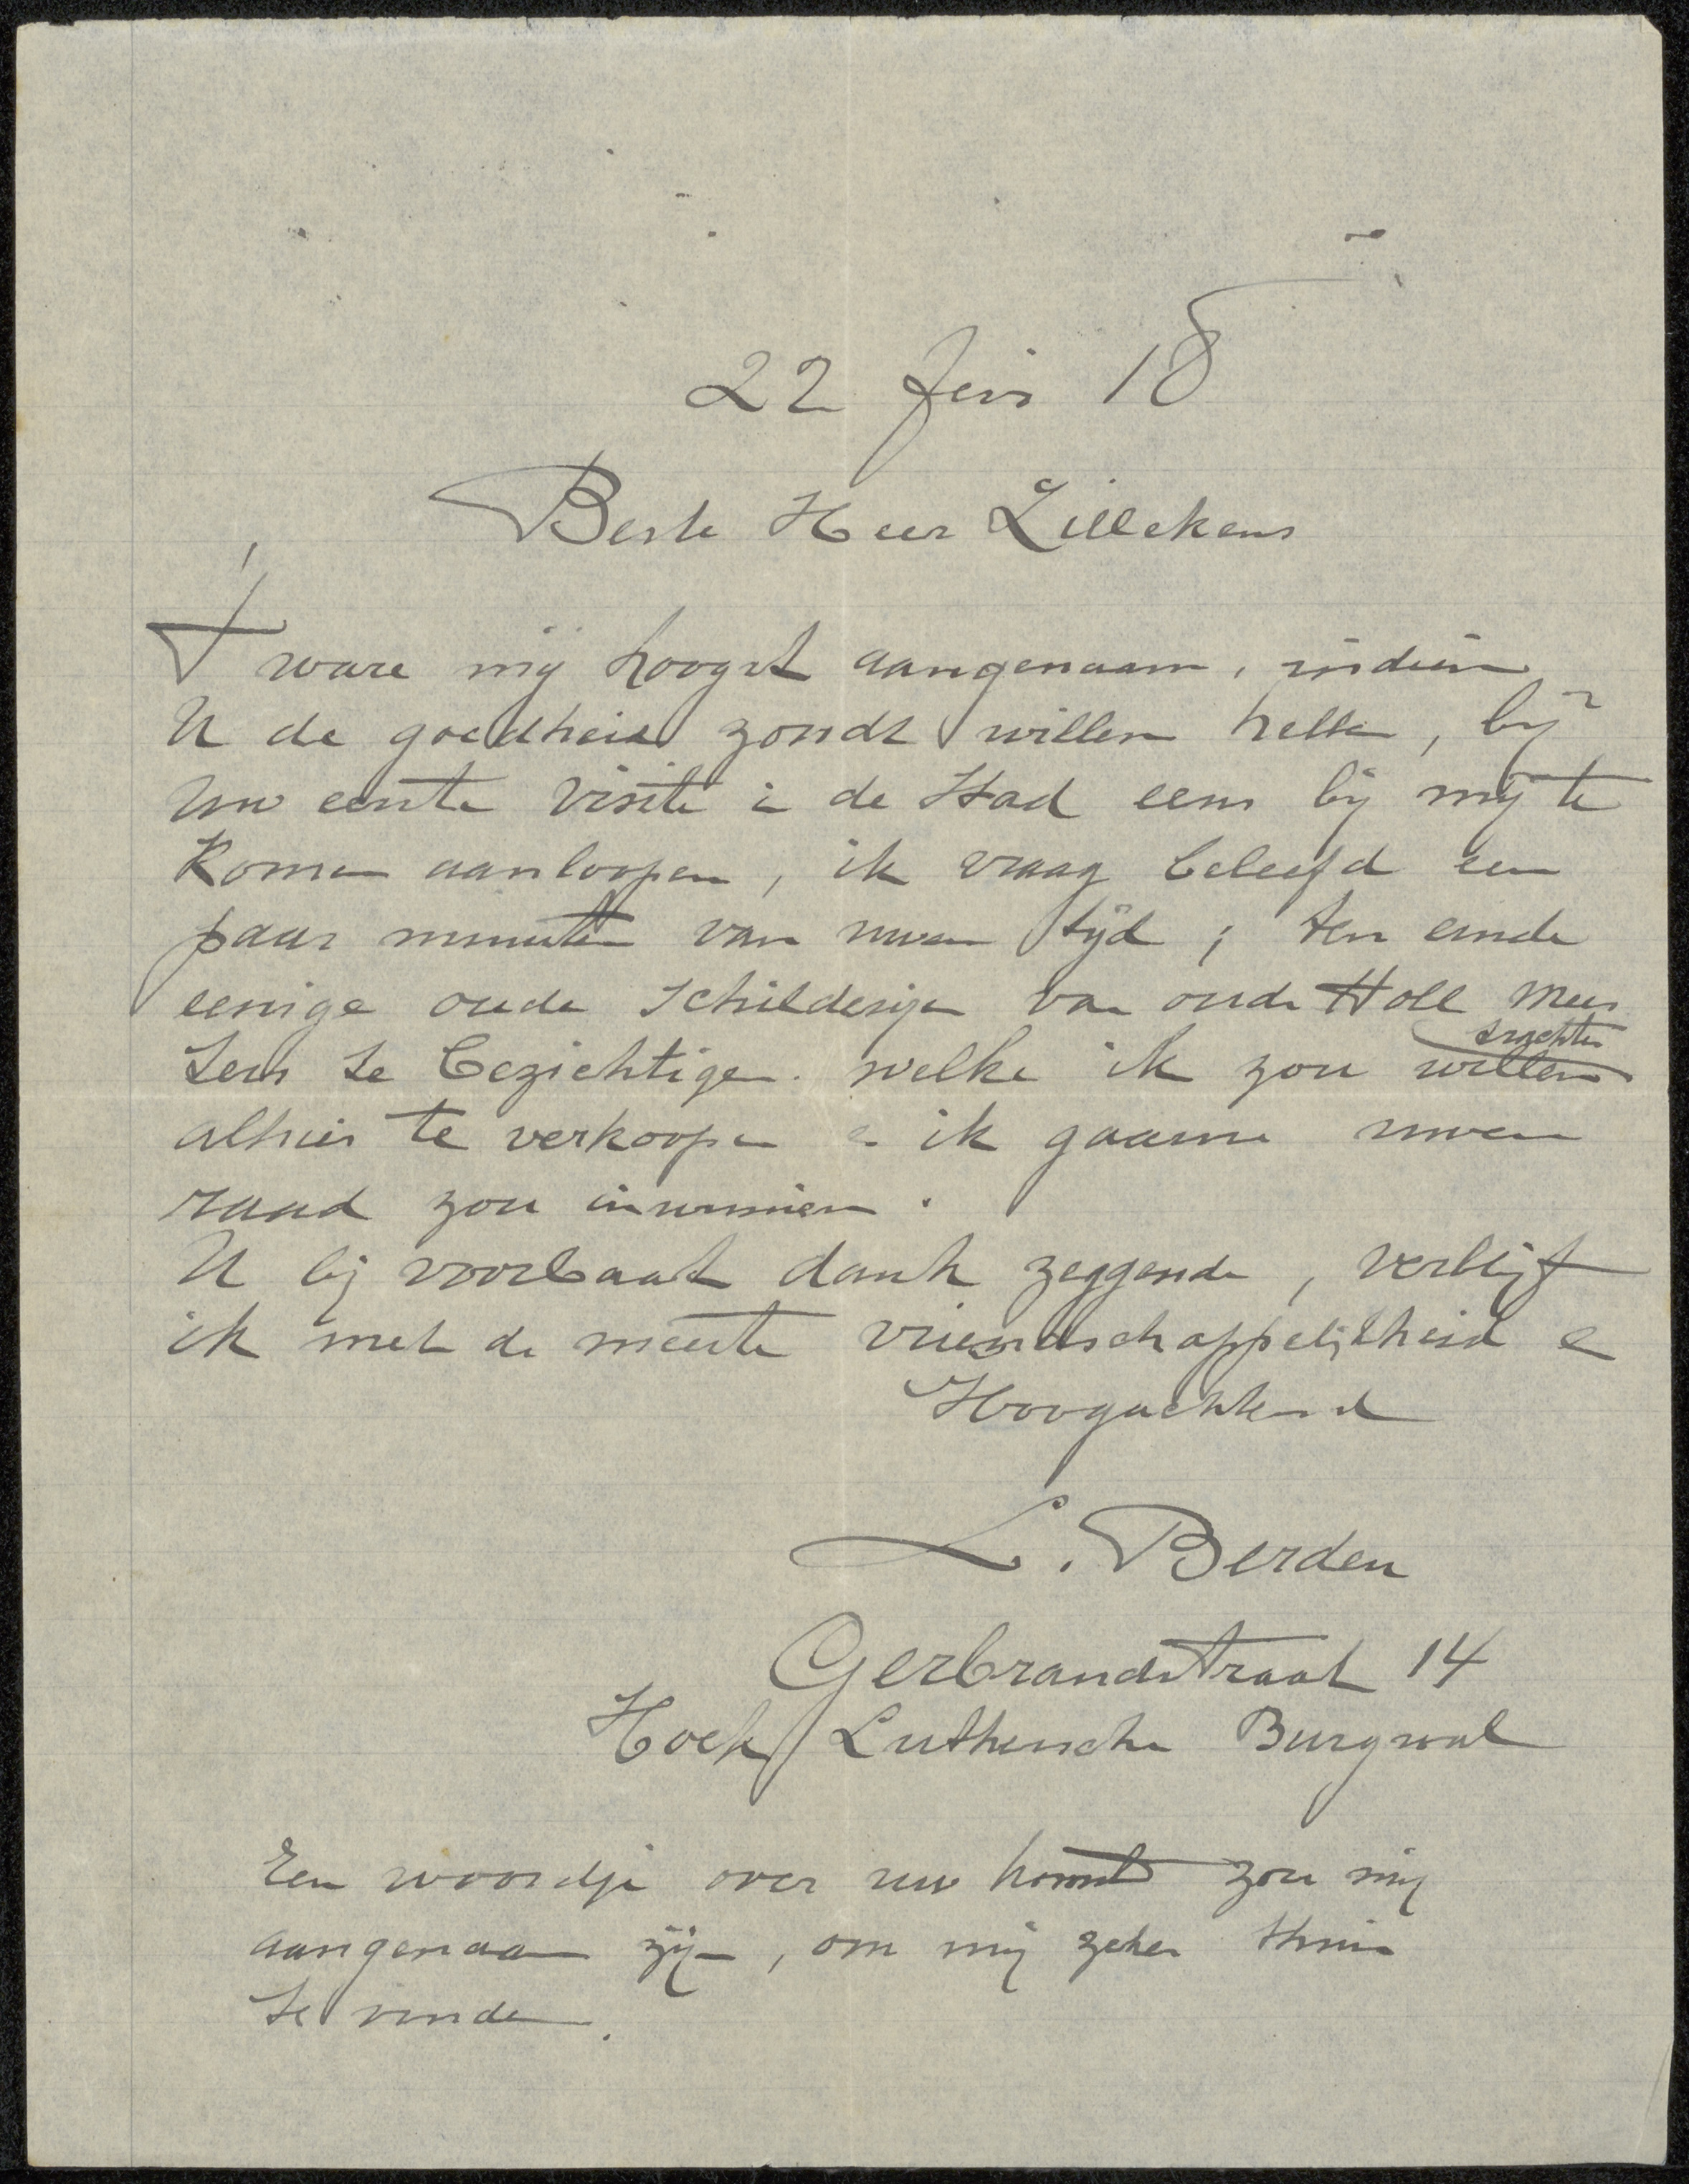 22 Juni 18
Beste Heer Zilcken
't ware mij hoogst aangenaam, indien
U de goedheid zoudt willen hebben, bij
Uw eerste visite in de Stad eens bij mij te
Komen aanloopen, ik vraag beleefd een
paar minuten van uwen tijd; ten einde
eenige oude schilderijen van oude Holl Mees
ters te bezichtigen. welke ik zou trachten
alhier te verkoopen en ik gaarne uwen
raad zou inwinnen.
U bij voorbaat dank zeggende, verblijf
ik met de meeste vriendschappelijkheid en
Hoogachtend
L. Berden
Gerbrandstraat 14
Hoek Luthersche Burgwal
Een woordje over uw komst zou mij
aangenaam zijn, om mij zeker thuis
te vinden.